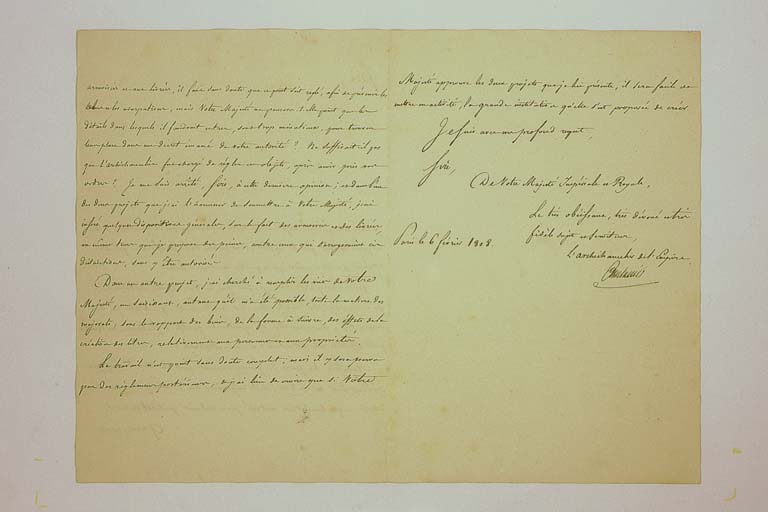 armoiries et aux livrées, il faut sans doute que ce point soit réglé, afin de prévenir les
les usurpations, mais Votre Majesté ne pensera-t-Elle point que les
détails dans lesquels il faudrait entrer, sont trop minutieux, pour trouver
leur place dans un décret émané de votre autorité? Ne suffirait-il pas
que l'archichancelier fut chargé de régler ces objets, après avoir pris vos
ordres? Je me suis arrêté, Sire, à cette dernière opinion; et dans l'un
des deux projets que j'ai l'honneur de soumettre à Votre Majesté, j'ai
inséré quelques dispositions générales, sur le fait des armoiries et des livrées
en même tems que je propose des peines, contre ceux qui s'arrogeraient ces
distinctions, sans y être autorisés.
Dans un autre projet, j'ai cherché à remplir les vues de Votre
Majesté, en saisissant, autant qu'il m'a été possible, toute la matière des
majorats, sous le rapport des biens, de la forme à suivre, des effets de la
création des titres, relativement aux personnes et aux propriétés.
Le travail n'est point sans doute complet, mais il y sera pourvu
par des réglemens postérieurs, et j'ai lieu de croire que si Votre
Majesté approuve les deux projets que je lui présente, il sera facile de
mettre en activité, la grande institution qu'elle s'est proposée de créer.
Je suis avec un profond respect,
Sire,
De Votre Majesté Impériale et Royale,
Le très obéissant, très dévoué et très
fidèle sujet et serviteur,
L'archichancelier de l'Empire
Cambacérès
Paris le 6 février 1808.